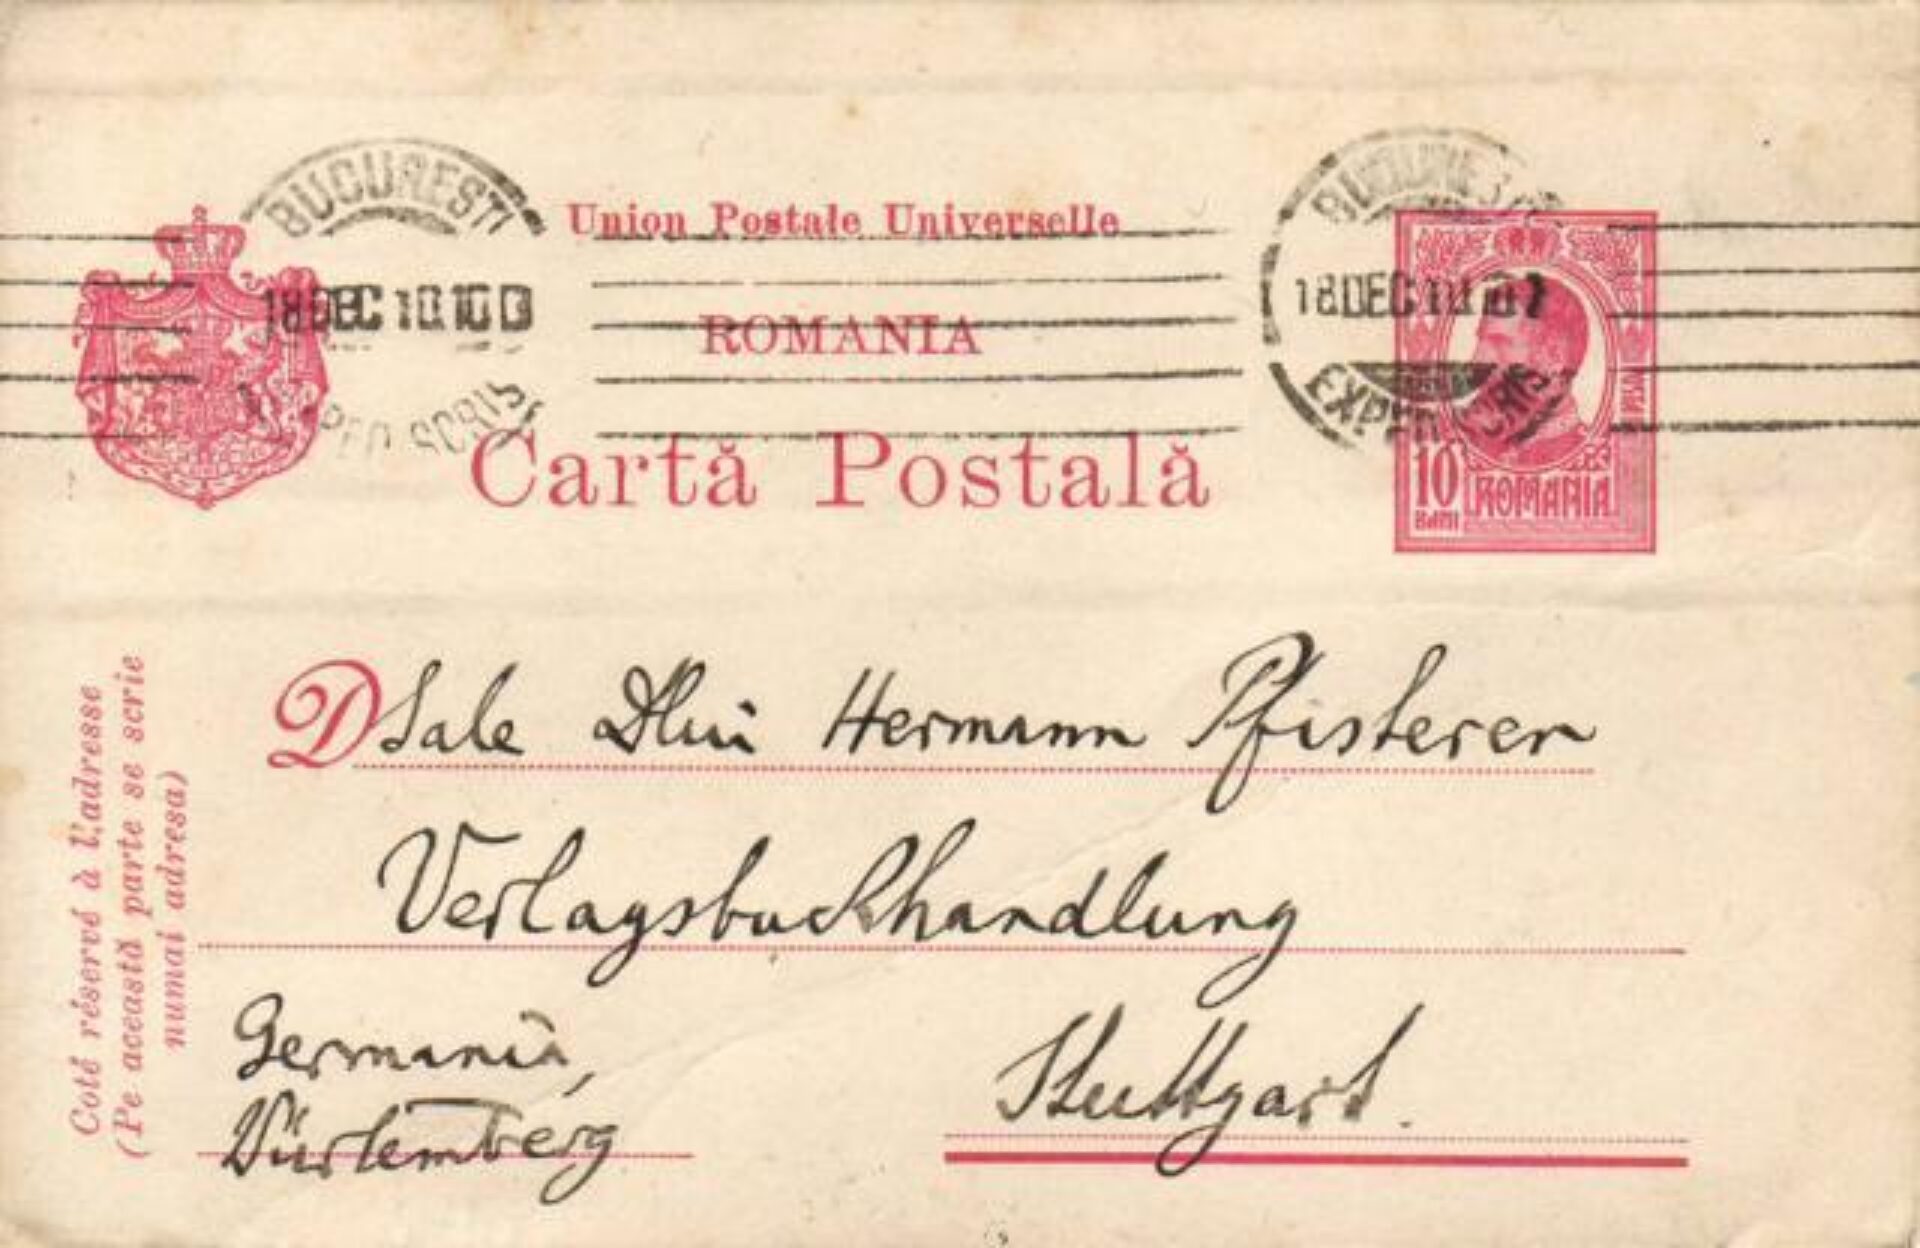 BUCURESTI
Union Postale Universelle
18 DEC 10
18 DEC 10
ROMANIA
Cartă Postală
10
BANI
ROMANIA
Coté réservé à l'adresse
(Pe această parte se scrie
numai adresa)
D Sale Dlui Hermann Pfisterer
Verlagsbuchhandlung
Germania,
Würtemberg
Stuttgart.